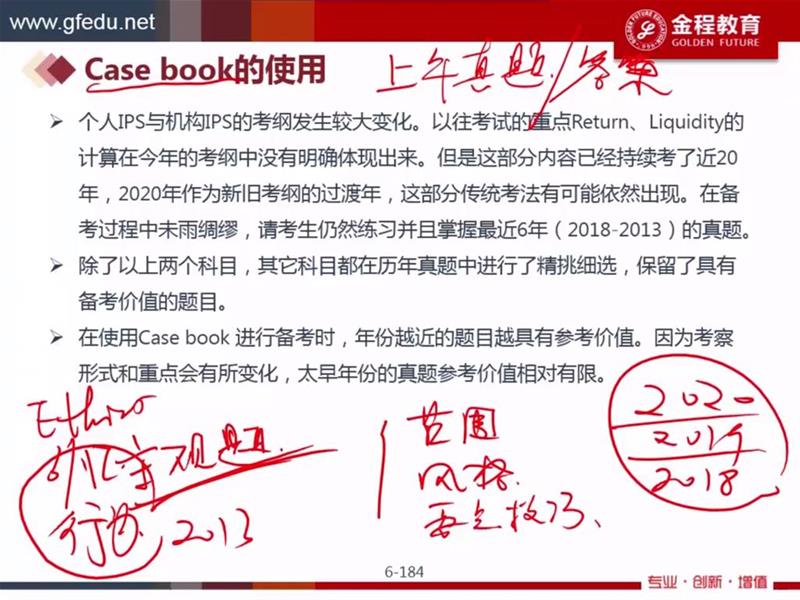 www.gfedu.net
金程教育
GOLDEN FUTURE
Case book的使用
上午真题/答案
个人IPS与机构IPS的考纲发生较大变化。以往考试的重点Return、Liquidity的
计算在今年的考纲中没有明确体现出来。但是这部分内容已经持续考了近20
年，2020年作为新旧考纲的过渡年，这部分传统考法有可能依然出现。在备
考过程中未雨绸缪，请考生仍然练习并且掌握最近6年（2018-2013）的真题。
除了以上两个科目，其它科目都在历年真题中进行了精挑细选，保留了具有
备考价值的题目。
在使用Case book 进行备考时，年份越近的题目越具有参考价值。因为考察
形式和重点会有所变化，太早年份的真题参考价值相对有限。
Ethics
观题
2013
范围
风格
2020
2019
2018
6-184
专业·创新·增值